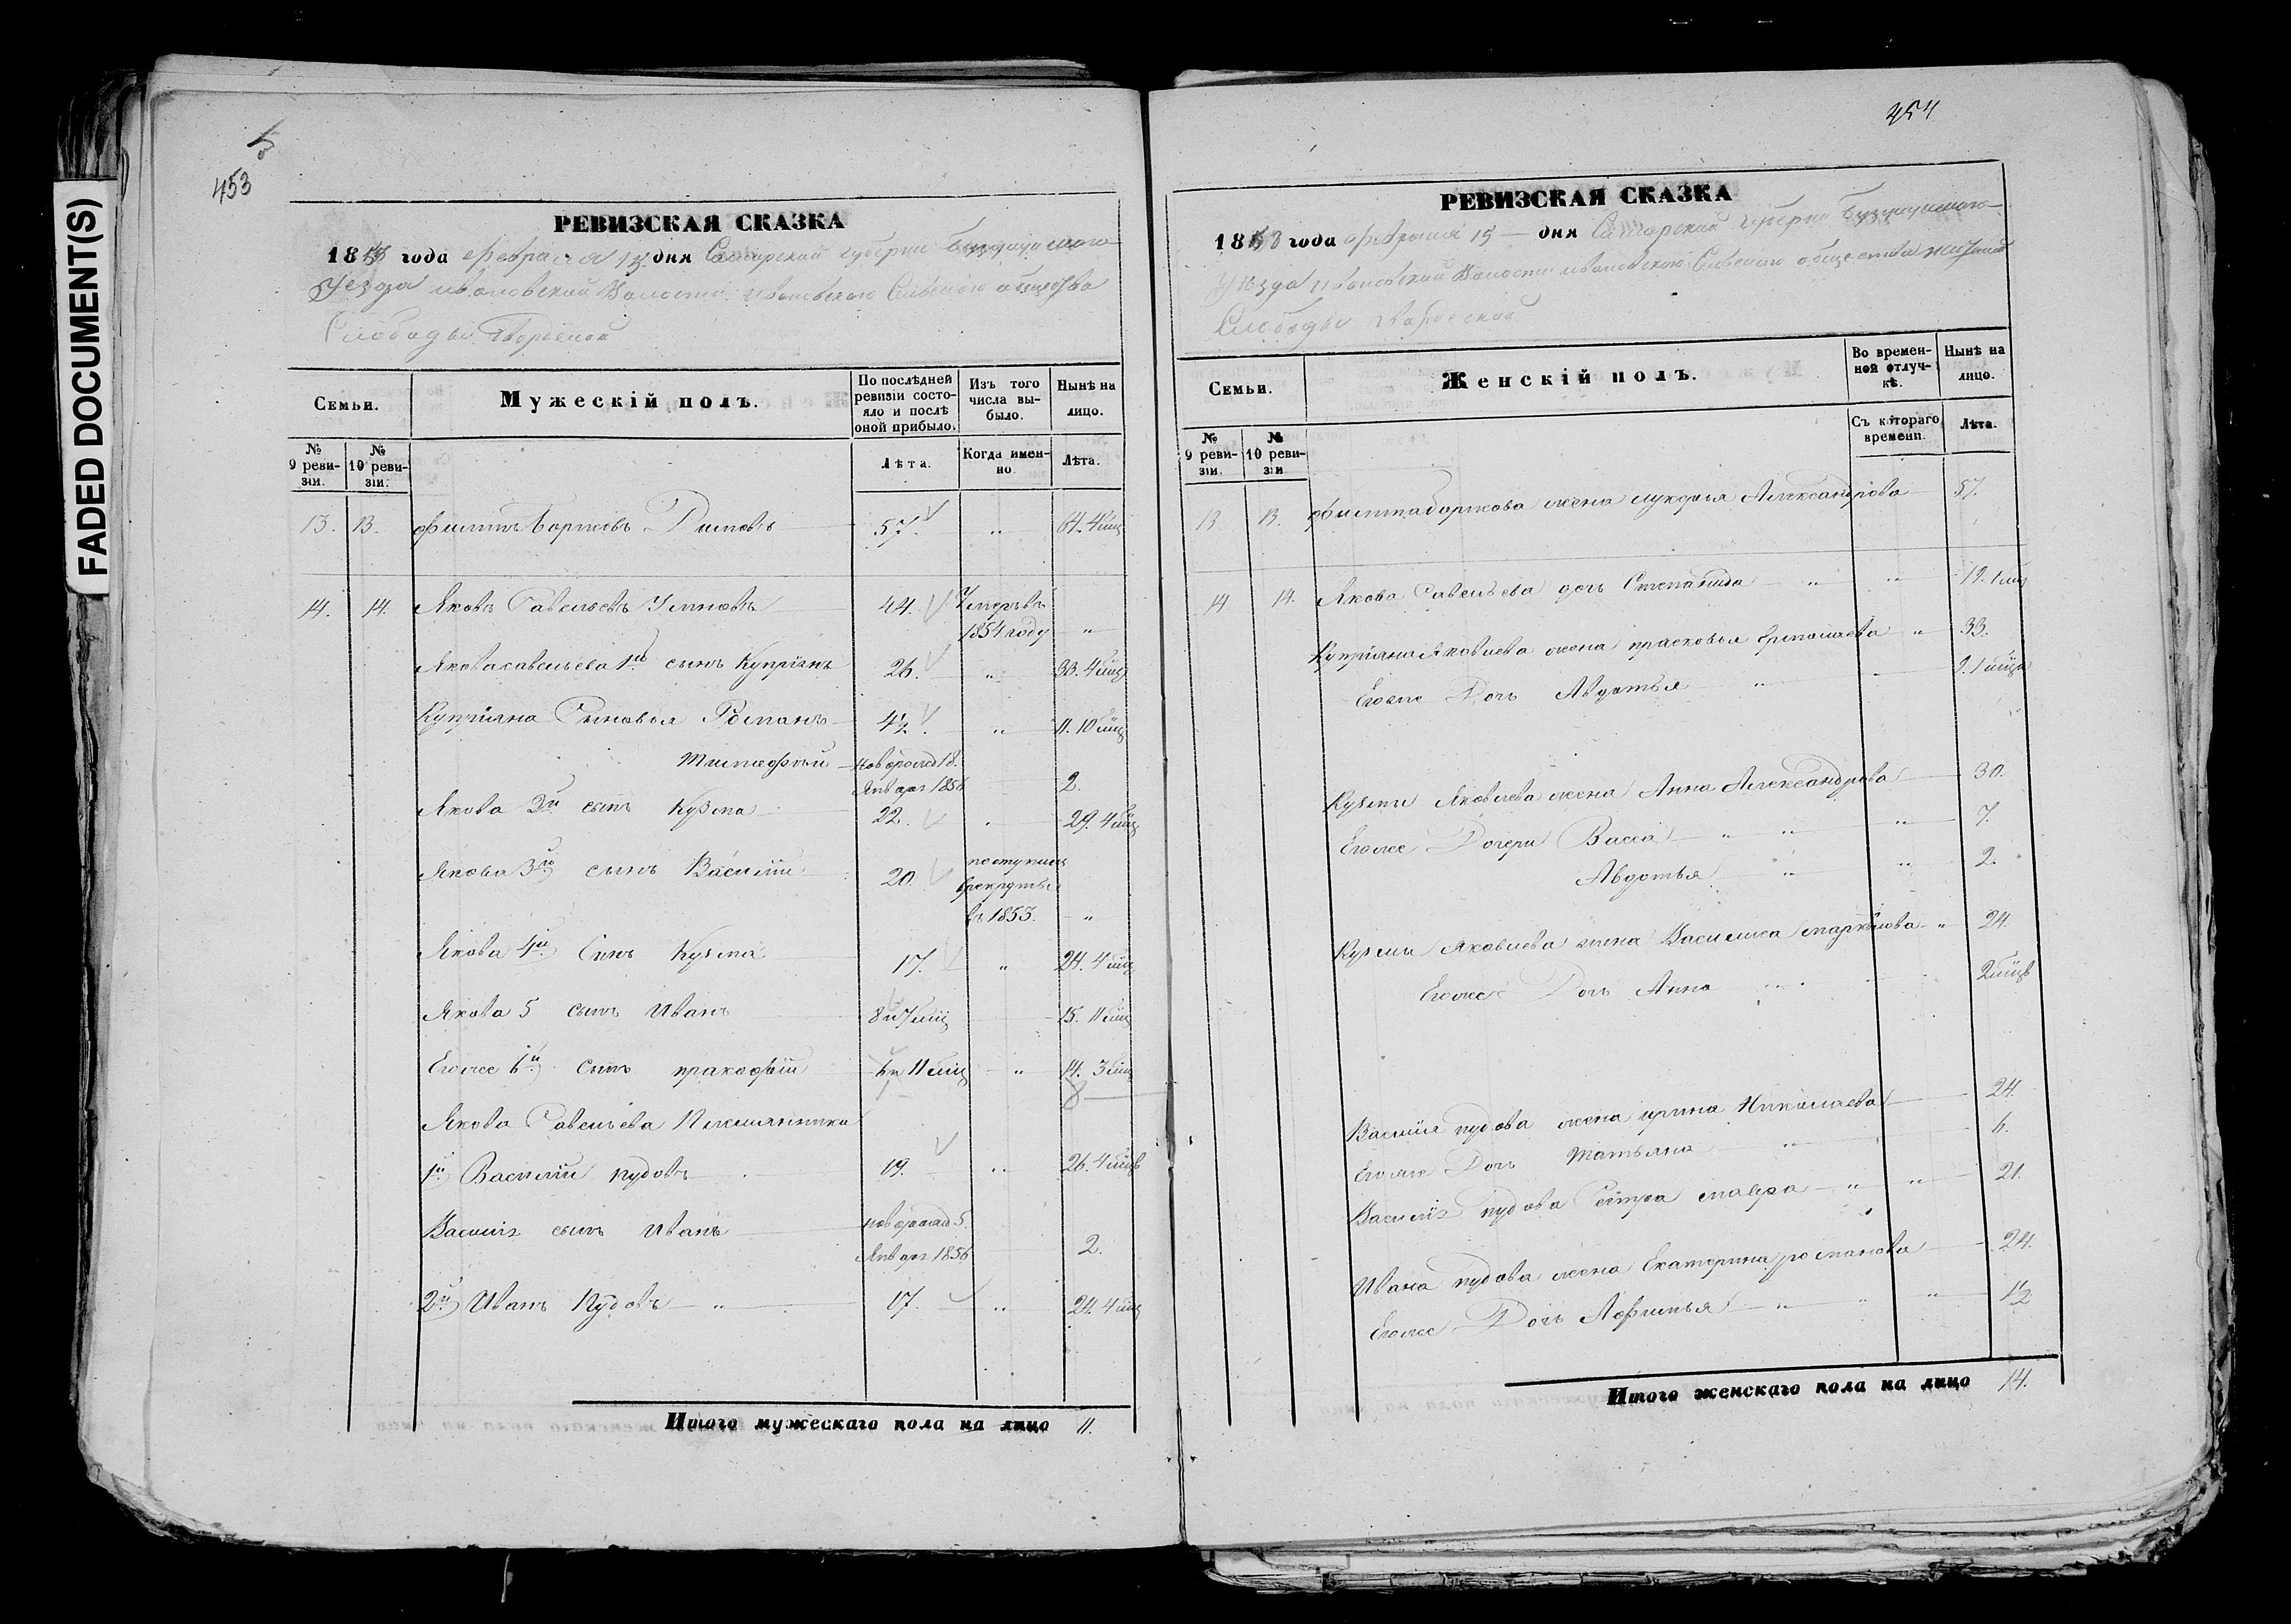 FADED DOCUMENT(S)
453
РЕВИЗСКАЯ СКАЗКА
1858 года февраля 15 дня Самарской губернии Бузулукскаго
Уезда Ивановской Волости Ивановскаго Сельскаго общества
Слободы
Семьи.
Мужескій полъ.
По послѣдней ревизіи состояло и послѣ оной прибыло.
Изъ того числа выбыло.
Нынѣ на лицо.
№ 9 ревизіи.
№ 10 ревизіи.
Лѣта.
Когда именно.
Лѣта.
13. 13. Филиппъ Борисовъ 57. „ 64. 4 мц
14. 14. Яковъ Савельевъ 44. Умеръ въ
1854 году „
Якова Савельева 1й сынъ Купріянъ 26. „ 33. 4 мц
Купріяна Сыновья Романъ 4½. „ 11. 10 мц
Тимофей новорожд 18.
Январ 1856 2.
Якова 2й сынъ Кузма 22. 29. 4 мц
Якова 3й сынъ Василій 20. поступилъ
в рекруты
въ 1853. „
Якова 4й Сынъ Кузма 17. „ 24. 4 мц
Якова 5 сынъ Иванъ 8 и 7 мц 15. 11 мц
Егоже 6й Сынъ пракофій 6 и 11 мц „ 14. 3 мц
Якова Савельева Племянники
1й Василій пудовъ 19. „ 26. 4 мцъ
Василія сынъ Иванъ новорожд 5.
Январ 1856 2.
2й Иванъ Пудовъ „ 17. „ 24. 4 мц
Итого мужескаго пола на лицо 11.
454
РЕВИЗСКАЯ СКАЗКА
1858 года февраля 15 дня Самарской губерни Бузулукскаго
Уѣзда Ивановской Волости Ивановскаго Сельскаго общества
Слободы
Семьи.
Женскій полъ.
Во временной отлучкѣ.
Нынѣ на лицо.
№ 9 ревизіи.
№ 10 ревизіи
Съ котораго времени.
Лѣта.
13. 13. Филиппа борисова жена лукерья Александрова 57.
14 14. Якова Савельева дочь Степанида „ „ 19. 1 мц
Купріяна Яковлева жена прасковья Ермолаева „ 33.
Егоже Дочь Авдотья „ 9. 1 мцъ
Кузмы Яковлева жена Анна Александрова 30.
Егоже Дочери Васса „ „ „ 7.
Авдотья „ „ 2.
Кузмы Яковлева жена Василиса маркелова „ 24.
Егоже Дочь Анна 2 мцъ
Василія пудова жена ирина Николаева 24.
Егоже Дочь Татьяна „ 6.
Василія пудова Сестра мавра „ „ 21.
Ивана пудова жена Екатерина романова 24.
Егоже Дочь Афимья „ „ „ 1½
Итого женскаго пола на лицо 14.